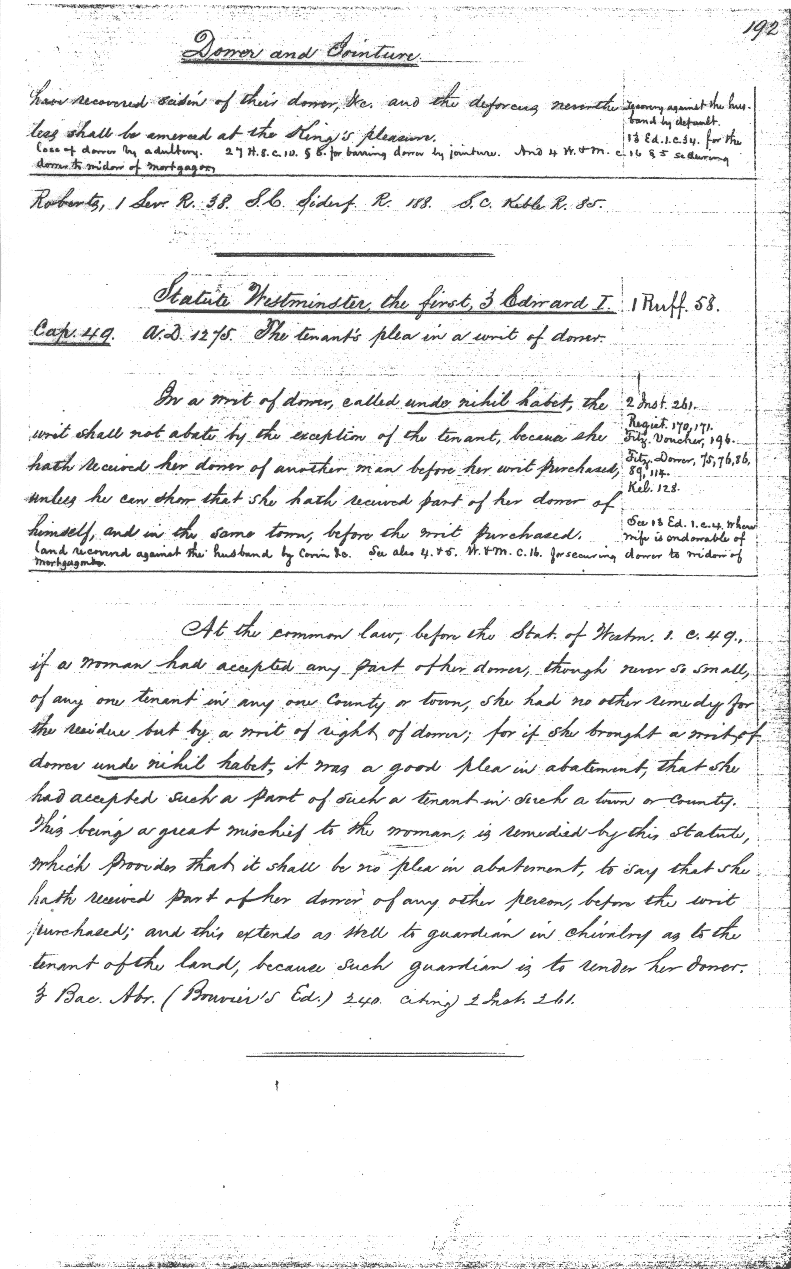 192
Dower and Jointure
have recovered seisin of their dower, &c. and the deforcers neverthe
less shall be amerced at the King's pleasure.
recovery against the hus-
band by default.
13 Ed. 1. c. 34. for the
loss of dower by adultery. 27 H. 8. c. 10. § 6. for barring dower by jointure. And 4 W. & M. c. 16 § 5 securing
dower to widow of mortgagor,
Roberts, 1 Lev. R. 38. S.C. Siderf. R. 188. S.C. Keble R. 85.
Statute Westminster, the first, 3 Edward I.
1 Ruff. 58.
Cap. 49. A.D. 1275. The tenant's plea in a writ of dower.
In a writ of dower, called unde nihil habet, the
writ shall not abate by the exception of the tenant, because she
hath received her dower of another man before her writ purchased,
unless he can show that she hath received part of her dower of
himself, and in the same town, before the writ purchased.
2 Inst. 261.
Regist. 170, 171.
Fitz. Voucher, 196.
Fitz. Dower, 75, 76, 86,
89, 114.
Kel. 128.
See 13 Ed. 1. c. 4. where
wife is endowable of
land recovered against the husband by Covin &c. See also 4. & 5. W. & M. C. 16. for securing dower to widow of
mortgagor.
At the common law, before the Stat. of Westm. 1. c. 49.,
if a woman had accepted any part of her dower, though never so small,
of any one tenant in any one County or town, she had no other remedy for
the residue but by a writ of right of dower; for if she brought a writ of
dower unde nihil habet, it was a good plea in abatement, that she
had accepted such a part of such a tenant in such a town or County.
This being a great mischief to the woman, is remedied by this statute,
which provides that it shall be no plea in abatement, to say that she
hath received part of her dower of any other person, before the writ
purchased; and this extends as well to guardian in chivalry as to the
tenant of the land, because such guardian is to render her dower.
3 Bac. Abr. (Bouvier's Ed.) 240. citing 2 Inst. 261.